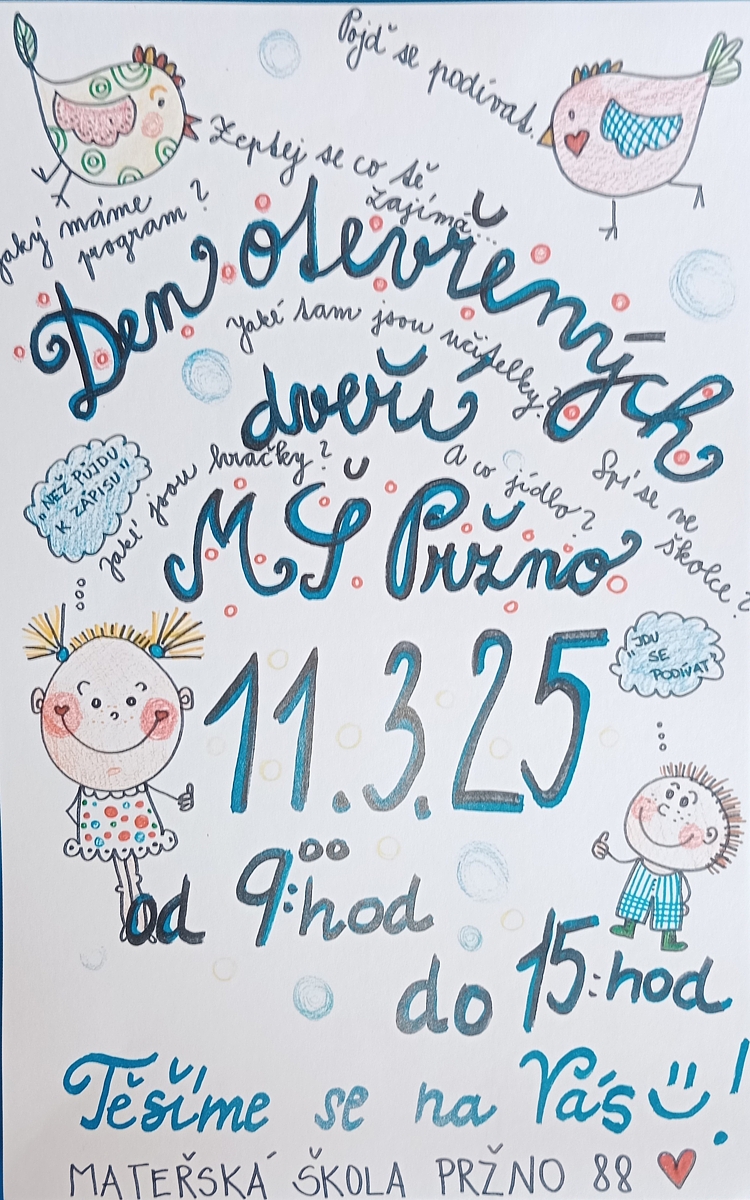 Pojď se podívat.
Zeptej se co tě
zajímá...
jaký máme
program?
Den otevřených
Jaké tam jsou učitelky?
dveřů
jaké jsou hračky?
A co jídlo?
Spí se ve
školce?
"NEŽ PŮJDU
K ZÁPISU"
MŠ Pržno
"JDU
SE
PODÍVAT"
11.3.25
od 9:00hod
do 15:hod
Těšíme se na Vás!
MATEŘSKÁ ŠKOLA PRŽNO 88